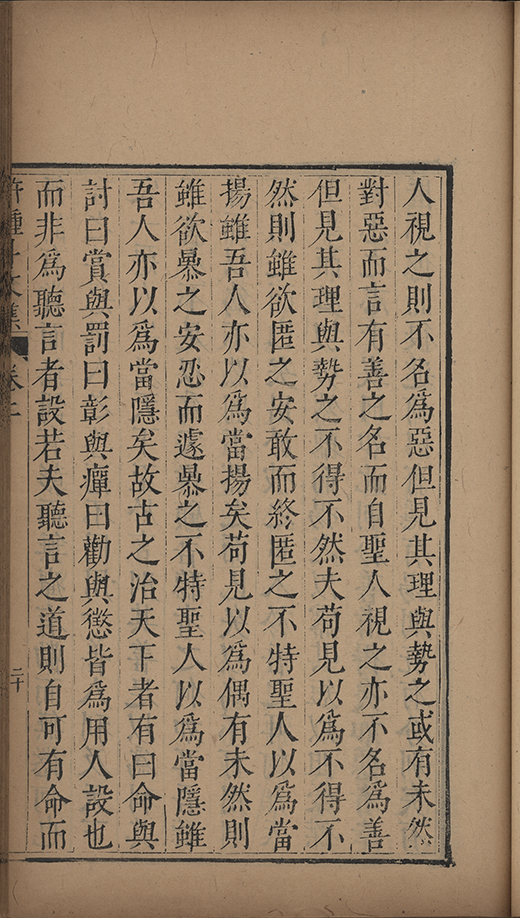 人視之則不名爲惡但見其理與勢之或有未然
對惡而言有善之名而自聖人視之亦不名爲善
但見其理與勢之不得不然夫苟見以爲不得不
然則雖欲匿之安敢而終匿之不特聖人以爲當
揚雖吾人亦以爲當揚矣苟見以爲偶有未然則
雖欲暴之安忍而遽暴之不特聖人以爲當隱雖
吾人亦以爲當隱矣故古之治天下者有曰命與
討曰賞與罰曰彰與癉曰勸與懲皆爲用人設也
而非爲聽言者設若夫聽言之道則自可有命而
許鍾斗文集 卷二 二十